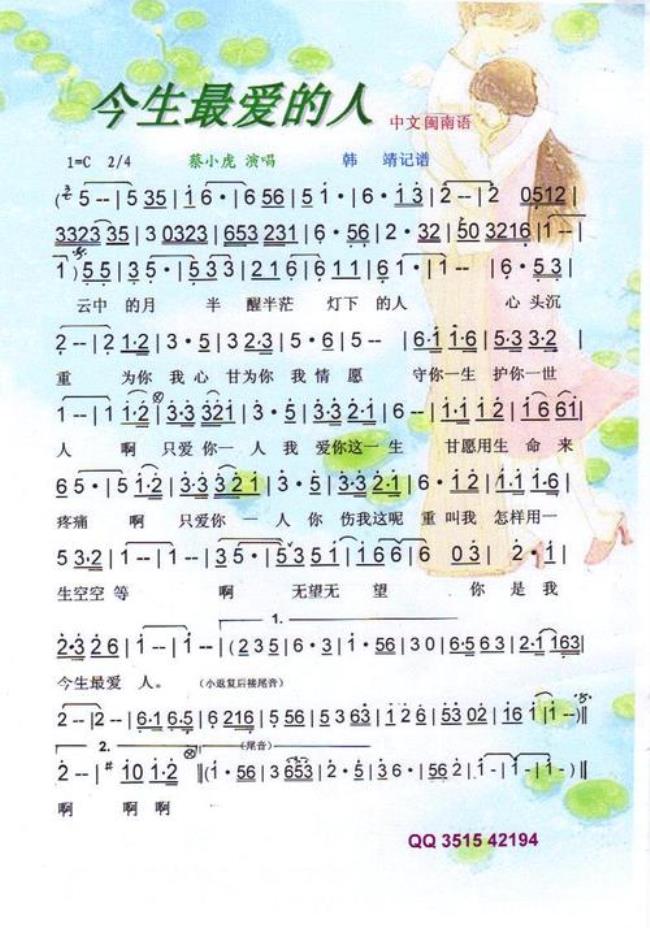 今生最爱的人 中文闽南语
1=C 2/4 蔡小虎 演唱 韩 靖记谱
(5 -- | 5 35 | 1 6· | 6 56 | 5 1· | 6· 13 | 2 -- | 2 0512 |
3323 35 | 3 0323 | 653 231 | 6· 56 | 2· 32 | 50 3216 | 1 -- |
1 ) 5 5 | 3 5· | 5 3 3 | 2 1 6 | 6 1 1 | 6· 5 | 6 1· | 1 -- | 6· 5 3 |
云中 的月 半 醒半茫 灯下 的人 心 头沉
2 -- | 2 1·2 | 3· 5 | 3 2·3 | 5· 6 | 5 -- | 6·1 1·6 | 5·3 3·2 |
重 为你 我 心 甘为你 我 情 愿 守你一生 护你一世
1 -- | 1 1·2 | 3·3 321 | 3· 5 | 3·3 2·1 | 6 -- | 1·1 1 2 | 1 6 61 |
人 啊 只爱 你一 人 我 爱你这一 生 甘愿用生 命来
6 5· | 5 1·2 | 3·3 3 2 1 | 3· 5 | 3·3 2·1 | 6· 2 | 1·2 | 1·1 1·6 |
疼痛 啊 只爱你 一 人 你 伤我这呢 重 叫我 怎样用一
5 3·2 | 1 -- | 1 -- | 3 5· | 5 3 5 1 | 1 6 6 | 6 0 3 | 2· 1 |
生空空 等 啊 无望无 望 你 是 我
1.
2·3 2 6 | 1 -- | 1 -- | ( 2 3 5 | 6· 3 | 1· 56 | 3 0 | 6·5 63 | 2·1 163 |
今生最爱 人。 (小返复后接尾音)
2 -- | 2 -- | 6·1 6·5 | 6 216 | 5 56 | 5 3 63 | 1 2 6 | 53 02 | 16 1 | 1 -- ) ‖
2. (尾音)
2 -- | #10 1·2 ‖ ( 1· 56 | 3 653 | 2· 5 | 3 6· | 56 2 | 1 - | 1 - | 1 - ) ‖
啊 啊 啊
QQ 3515 42194